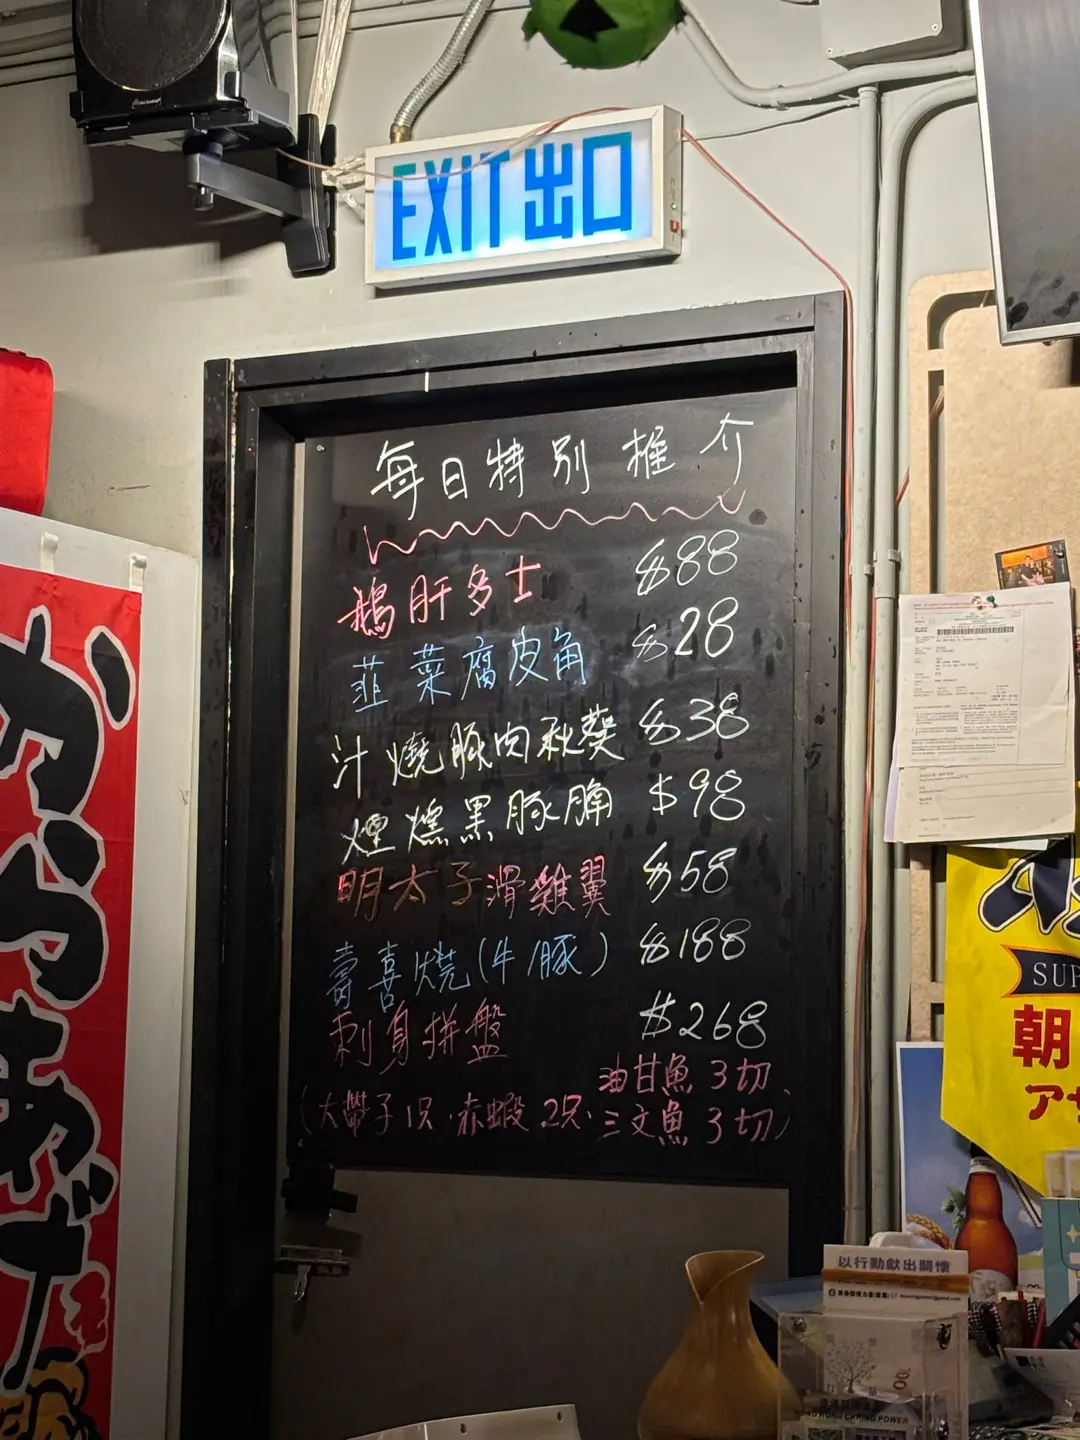 EXIT出口
每日特別推介
鵝肝多士 $88
韮菜腐皮角 $28
汁燒豚肉秋葵 $38
煙燻黑豚腩 $98
明太子滑雞翼 $58
壽喜燒(牛/豚) $188
刺身拼盤 $268
油甘魚3切、
(大帶子1只·赤蝦2只·三文魚3切)
からあげ
SUP
朝
アサ
以行動獻出關懷
HONG KONG CARING POWER